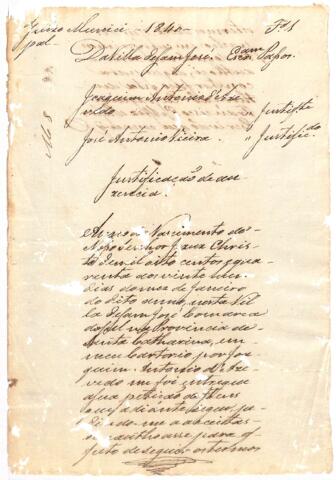 Juizo Munici 1840 Fs 1
pal
Da Villa de Sam José. Escam Passos.
Joaquim Antonio d'Aze
vedo Justifte
José Antonio Vieira " Justificdo
Justificação de au
zencia
Anno do Nascimento de
Nosso Senhor Jezus Chris
to de mil oito centos qua
renta aos vinte
dias do mez de Janeiro
do dito anno, nesta Vil
la de Sam José Comarca
do Sul da Provincia de
Santa Catharina, em
meu Cartorio por Joa
quim Antonio d'Aze
vedo me foi entregue
a sua petição
que adiante segue, pe
dindo-me a aceitas
se e authoasse para o
feito de seguir os termos